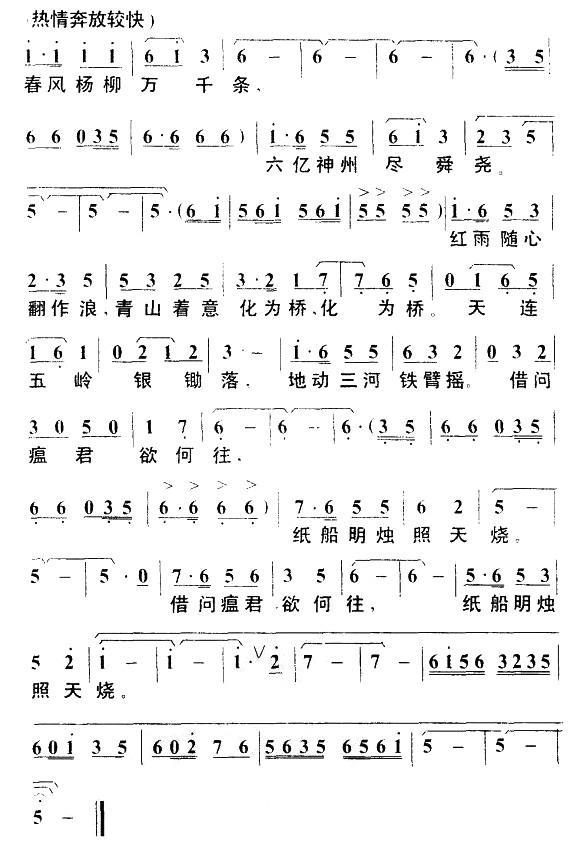 (热情奔放较快)
1·1 1 1 | 6 1 3 | 6 – | 6 – | 6 – | 6·(3 5 |
春风杨柳 万 千条、
6 6 0 3 5 | 6·6 6 6) | 1·6 5 5 | 6 1 3 | 2 3 5 |
六亿神州 尽 舜尧。
5 – | 5 – | 5·(6 1 | 5 6 1 5 6 1 | 5 5 5 5) | 1·6 5 3 |
红雨随心
2·3 5 | 5 3 2 5 | 3·2 1 7 | 7 6 5 | 0 1 6 5 |
翻作浪、青山着意 化为桥、化 为桥。 天 连
1 6 1 | 0 2 1 2 | 3 – | 1·6 5 5 | 6 3 2 | 0 3 2 |
五 岭 银 锄落、 地动三河 铁臂摇。 借问
3 0 5 0 | 1 7 | 6 – | 6 – | 6·(3 5 | 6 6 0 3 5 |
瘟 君 欲何往、
6 6 0 3 5 | 6·6 6 6) | 7·6 5 5 | 6 2 | 5 – |
纸船明烛 照天烧。
5 – | 5·0 | 7·6 5 6 | 3 5 | 6 – | 6 – | 5·6 5 3 |
借问瘟君 欲何往, 纸船明烛
5 2 | 1 – | 1 – | 1·∨2 | 7 – | 7 – | 6156 3235 |
照天烧。
6 0 1 3 5 | 6 0 2 7 6 | 5635 6561 | 5 – | 5 – |
5 – ‖